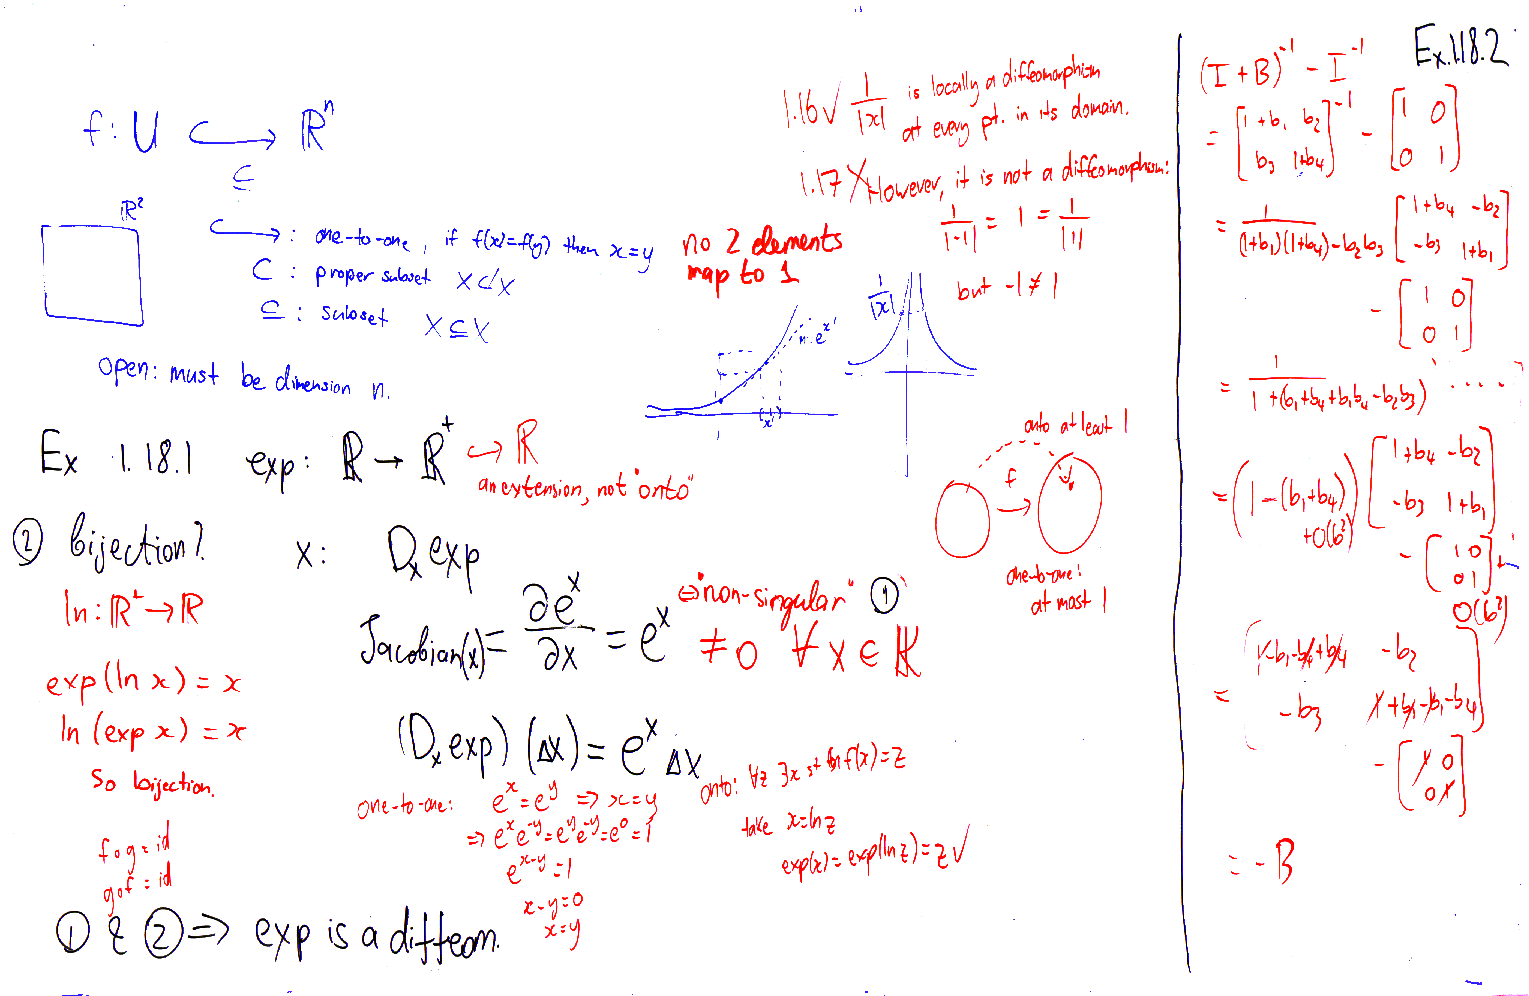 f: U ↪ ℝⁿ
⊆
ℝ²
↪: one-to-one, if f(x)=f(y) then x=y
⊂ : proper subset X⊄X
⊆ : subset X⊆X
open: must be dimension n.
no 2 elements
map to 1
1.16 ✓ 1/|x| is locally a diffeomorphism
at every pt. in its domain.
1.17 X However, it is not a diffeomorphism:
1/|-1| = 1 = 1/|1|
but -1 ≠ 1
1/|x|
x
Ex 1.18.1 exp: ℝ → ℝ⁺ ↪ ℝ
an extension, not "onto"
onto at least 1
f
one-to-one:
at most 1
② bijection?
ln: ℝ⁺ → ℝ
exp(ln x) = x
ln(exp x) = x
So bijection.
f∘g = id
g∘f = id
x: Dₓ exp
Jacobian(x) = ∂eˣ/∂x = eˣ ≠ 0 ∀ x ∈ ℝ
⇔ "non-singular" ①
(Dₓ exp)(Δx) = eˣ Δx
one-to-one: eˣ = eʸ ⇒ x=y
⇒ eˣe⁻ʸ = eʸe⁻ʸ = e⁰ = 1
eˣ⁻ʸ = 1
x-y=0
x=y
onto: ∀z ∃x st f(x)=z
take x=ln z
exp(x) = exp(ln z) = z ✓
① & ② ⇒ exp is a diffeom.
Ex.1.18.2
(I + B)⁻¹ - I⁻¹
= [1+b₁ b₂; b₃ 1+b₄]⁻¹ - [1 0; 0 1]
= 1/((1+b₁)(1+b₄)-b₂b₃) [1+b₄ -b₂; -b₃ 1+b₁]
- [1 0; 0 1]
= 1/(1+(b₁+b₄+b₁b₄-b₂b₃)) ....
= (1-(b₁+b₄)+O(b²)) [1+b₄ -b₂; -b₃ 1+b₁]
- [1 0; 0 1] + O(b²)
= [1-b₁-b₄+b₄ -b₂; -b₃ 1+b₁-b₁-b₄]
- [1 0; 0 1]
= -B